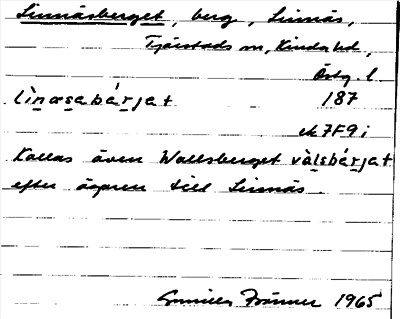 Linnäsberget, berg, Linnäs,
Tjärstads sn, Kinda hd,
Östg. l.
lìnæsabárjat 187
ek 7F9i
Kallas även Wallsberget vàlsbárjat
efter ägaren till Linnäs.
Gunilla 1965